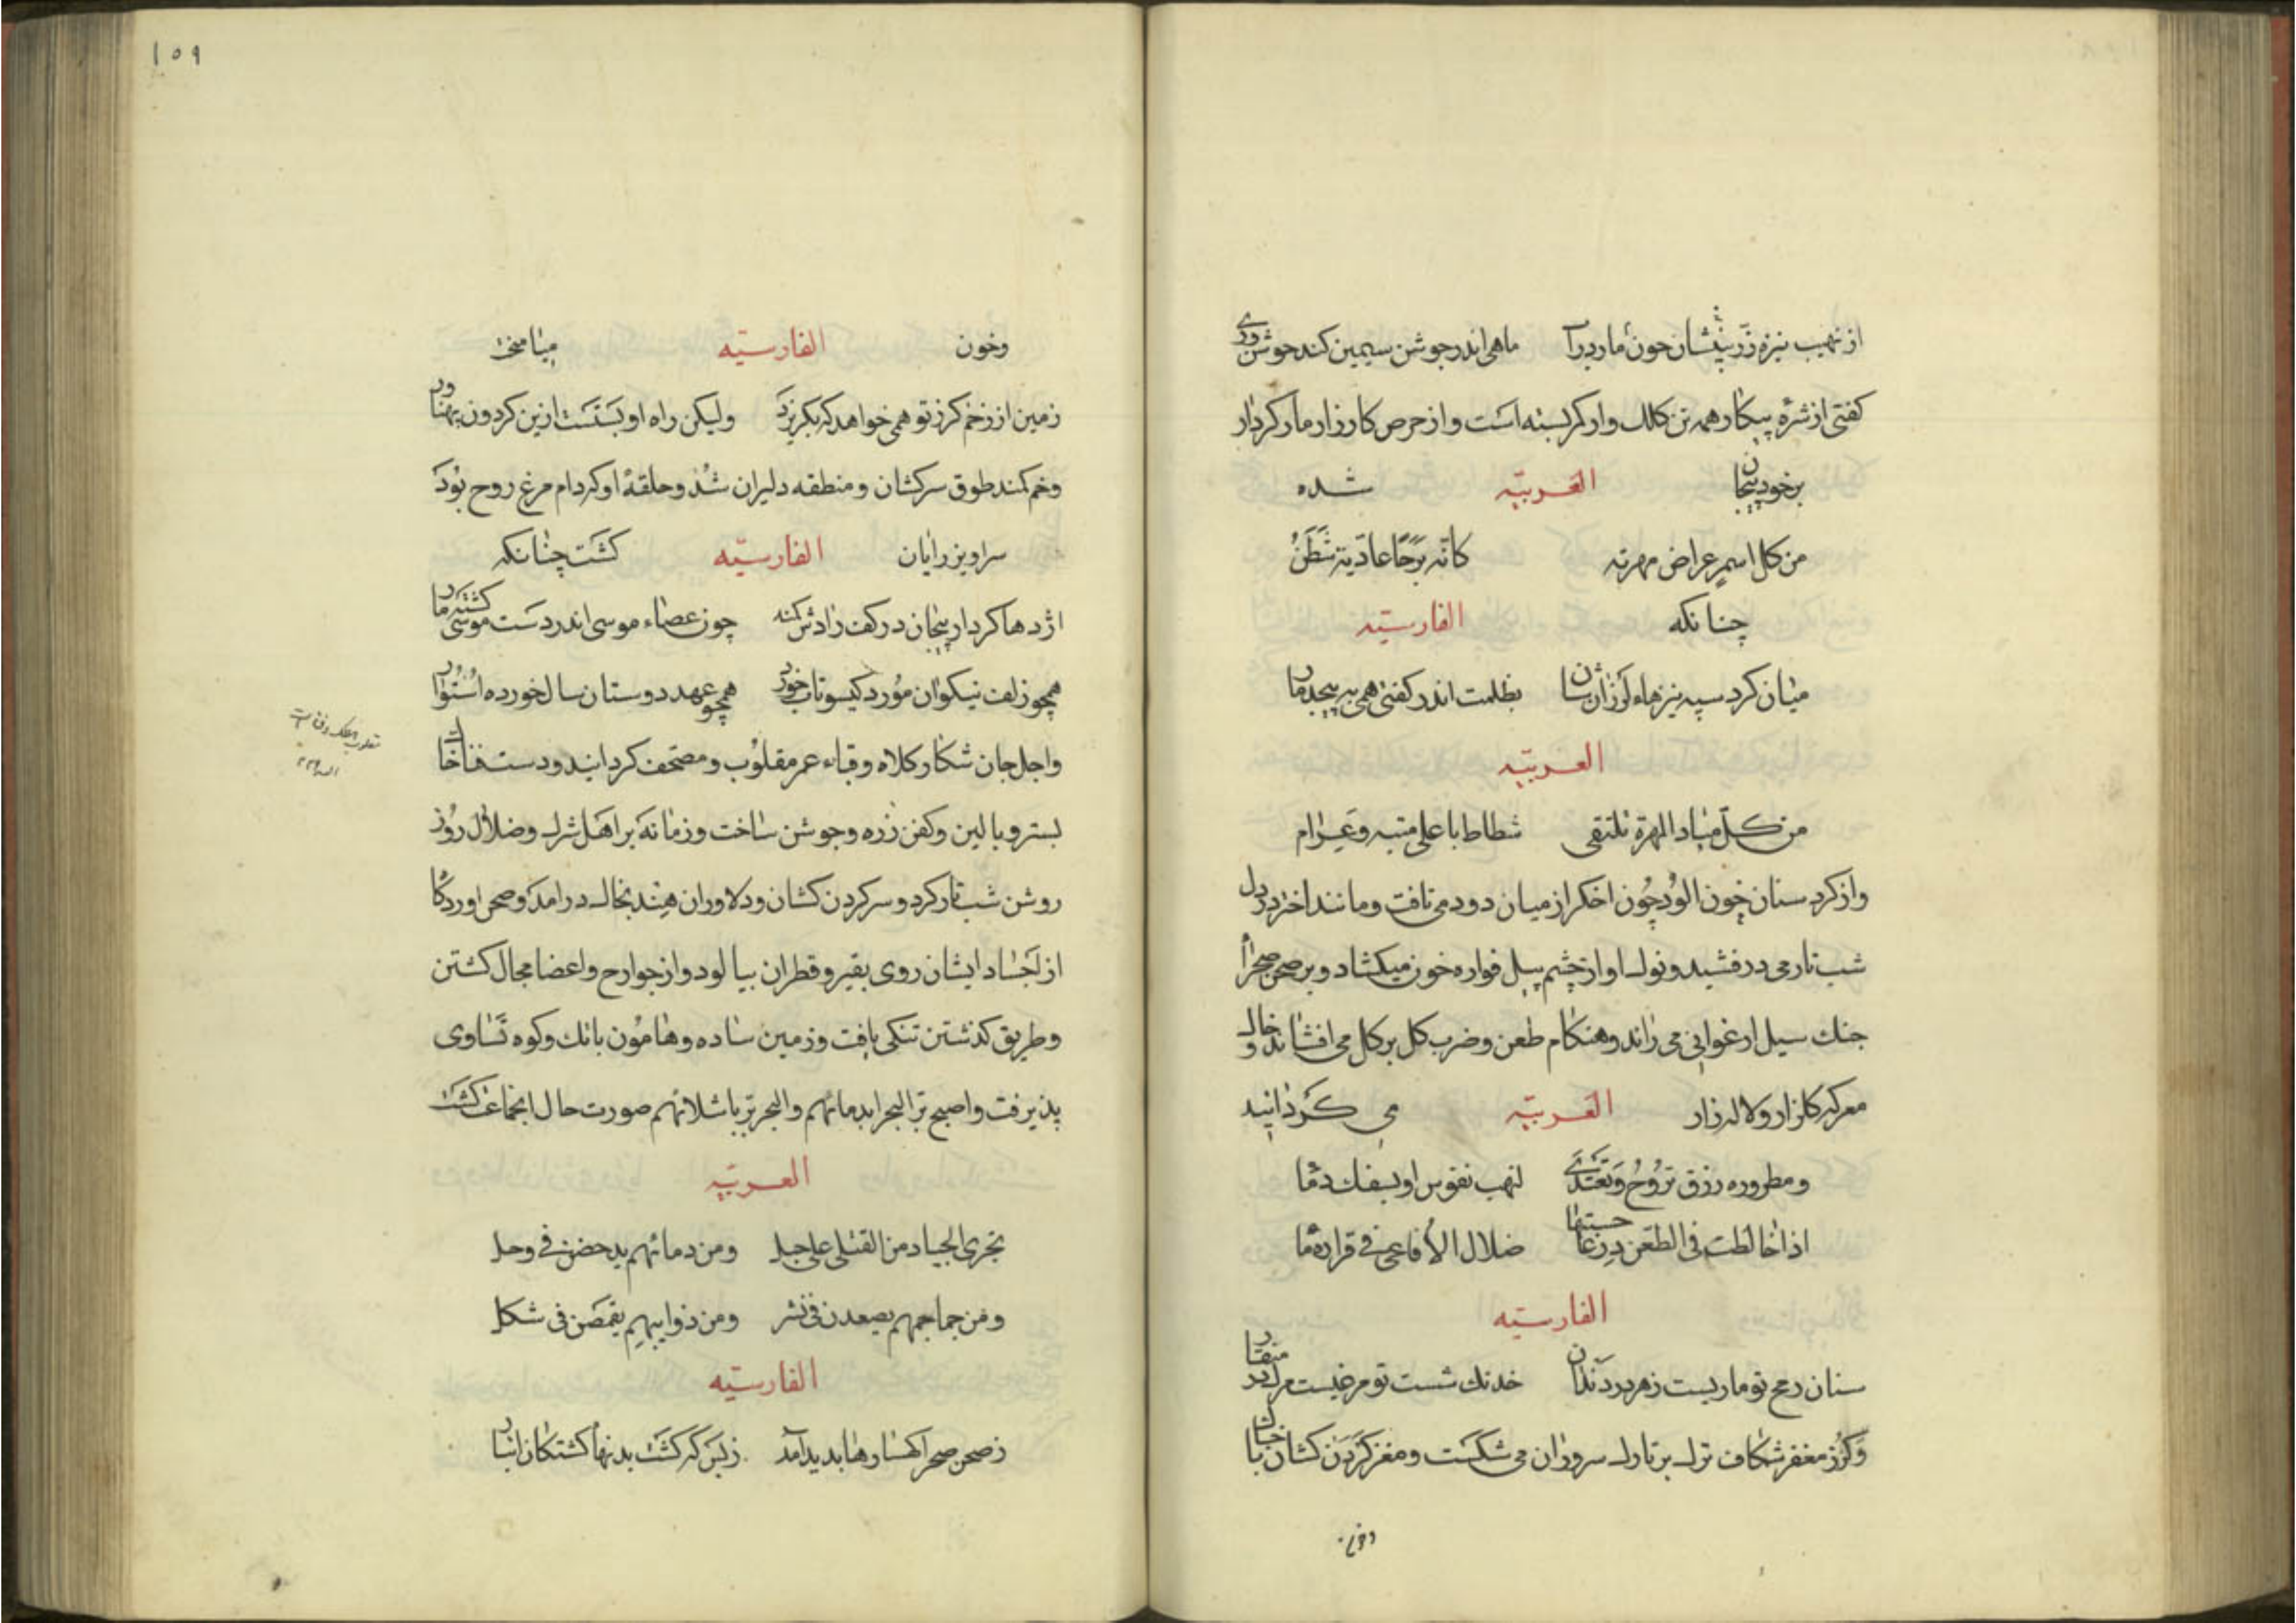 از نهیب نیزه زرینشان چون مار درآ ماهی اندر جوشن سیمین کند جوشن وری
کفتی از شره پیکار همه تن کلک وار کمر بسته است و از حرص کارزار مار کردار
برخود پیچان العربیّه شده
من كل اسمر عراض مهزته كانه برجا عادية شطن
چنانکه الفارسیّه
میان کرد سیه نیزهاء لرزانشان بظلمت اندر کفتی همی بپیچد مار
العربیّه
من كلّ میاد المهزة یلتقی شطاط باعلی متنه و عرام
و از کرد سنان خون الود چون اخکر از میان دود می تافت و مانند اختر در دل
شب تار می درفشید و نوک او از چشم پیل فواره خون میکشاد و بر صحن صحرا
جنک سیل ارغوانی می راند و هنکام طعن و ضرب کل بر کل می افشاند و خاک
معرکه کلزار و لاله زار العربیّه می کردانید
ومطروره زرق تروح وتغتدی لنهب نفوس او بسفک دما
اذا خالطت فی الطعن درعا حسبتها ضلال الأفاعی فی قراره ما
الفارسیّه
سنان رمح تو ماریست زهر بر دندان خدنک شست تو مرغیست مرک در منقار
و کرز مغفر شکاف ترک بر تارک سروران می شکست و مغز کردن کشان با خاک
وخون
۱۵۹
وخون الفارسیّه میامخت
زمین از زخم کرز تو همی خواهد که بکریزد ولیکن راه او بستست ازین کردون پهناور
و خم کمند طوق سرکشان و منطقه دلیران شد و حلقهٔ او که دام مرغ روح بود
سراویز رایان الفارسیّه کشت چنانکه
اژدها کردار پیچان در کف رادش کمند چون عصاء موسی اندر دست موسی کشته مار
همچو زلف نیکوان مورد کیسو تاب خورد همچو عهد دوستان سالخورده استوار
و اجل جان شکار کلاه و قباء عمر مقلوب و مصحف کردانید و دست فنا خاک
بستر و بالین و کفن زره و جوشن ساخت و زمانه بر اهل شرک و ضلال روز
روشن شب تار کرد و سر کردن کشان و دلاوران هند بخاک درامد و صحن اوردکا
از اجساد ایشان روی بقیر و قطران بیالود و از جوارح و اعضا مجال کشتن
و طریق کذشتن تنکی یافت و زمین ساده و هامون بانک و کوه تساوی
پذیرفت و اصبح برّ البحرا بدمائهم و البحر برّ باشلائهم صورت حال ان جماعت کشت
العربیّه
تجری الجیاد من القتلی علی جبل ومن دمائهم یدحضن فی وحل
ومن جماجمهم یصعدن فی نشر ومن ذوایبهم یقمصن فی شکل
الفارسیّه
ز صحن صحرا کهسارها بدید آمد ز بس که کشت بدنهاء کشتکان انبار